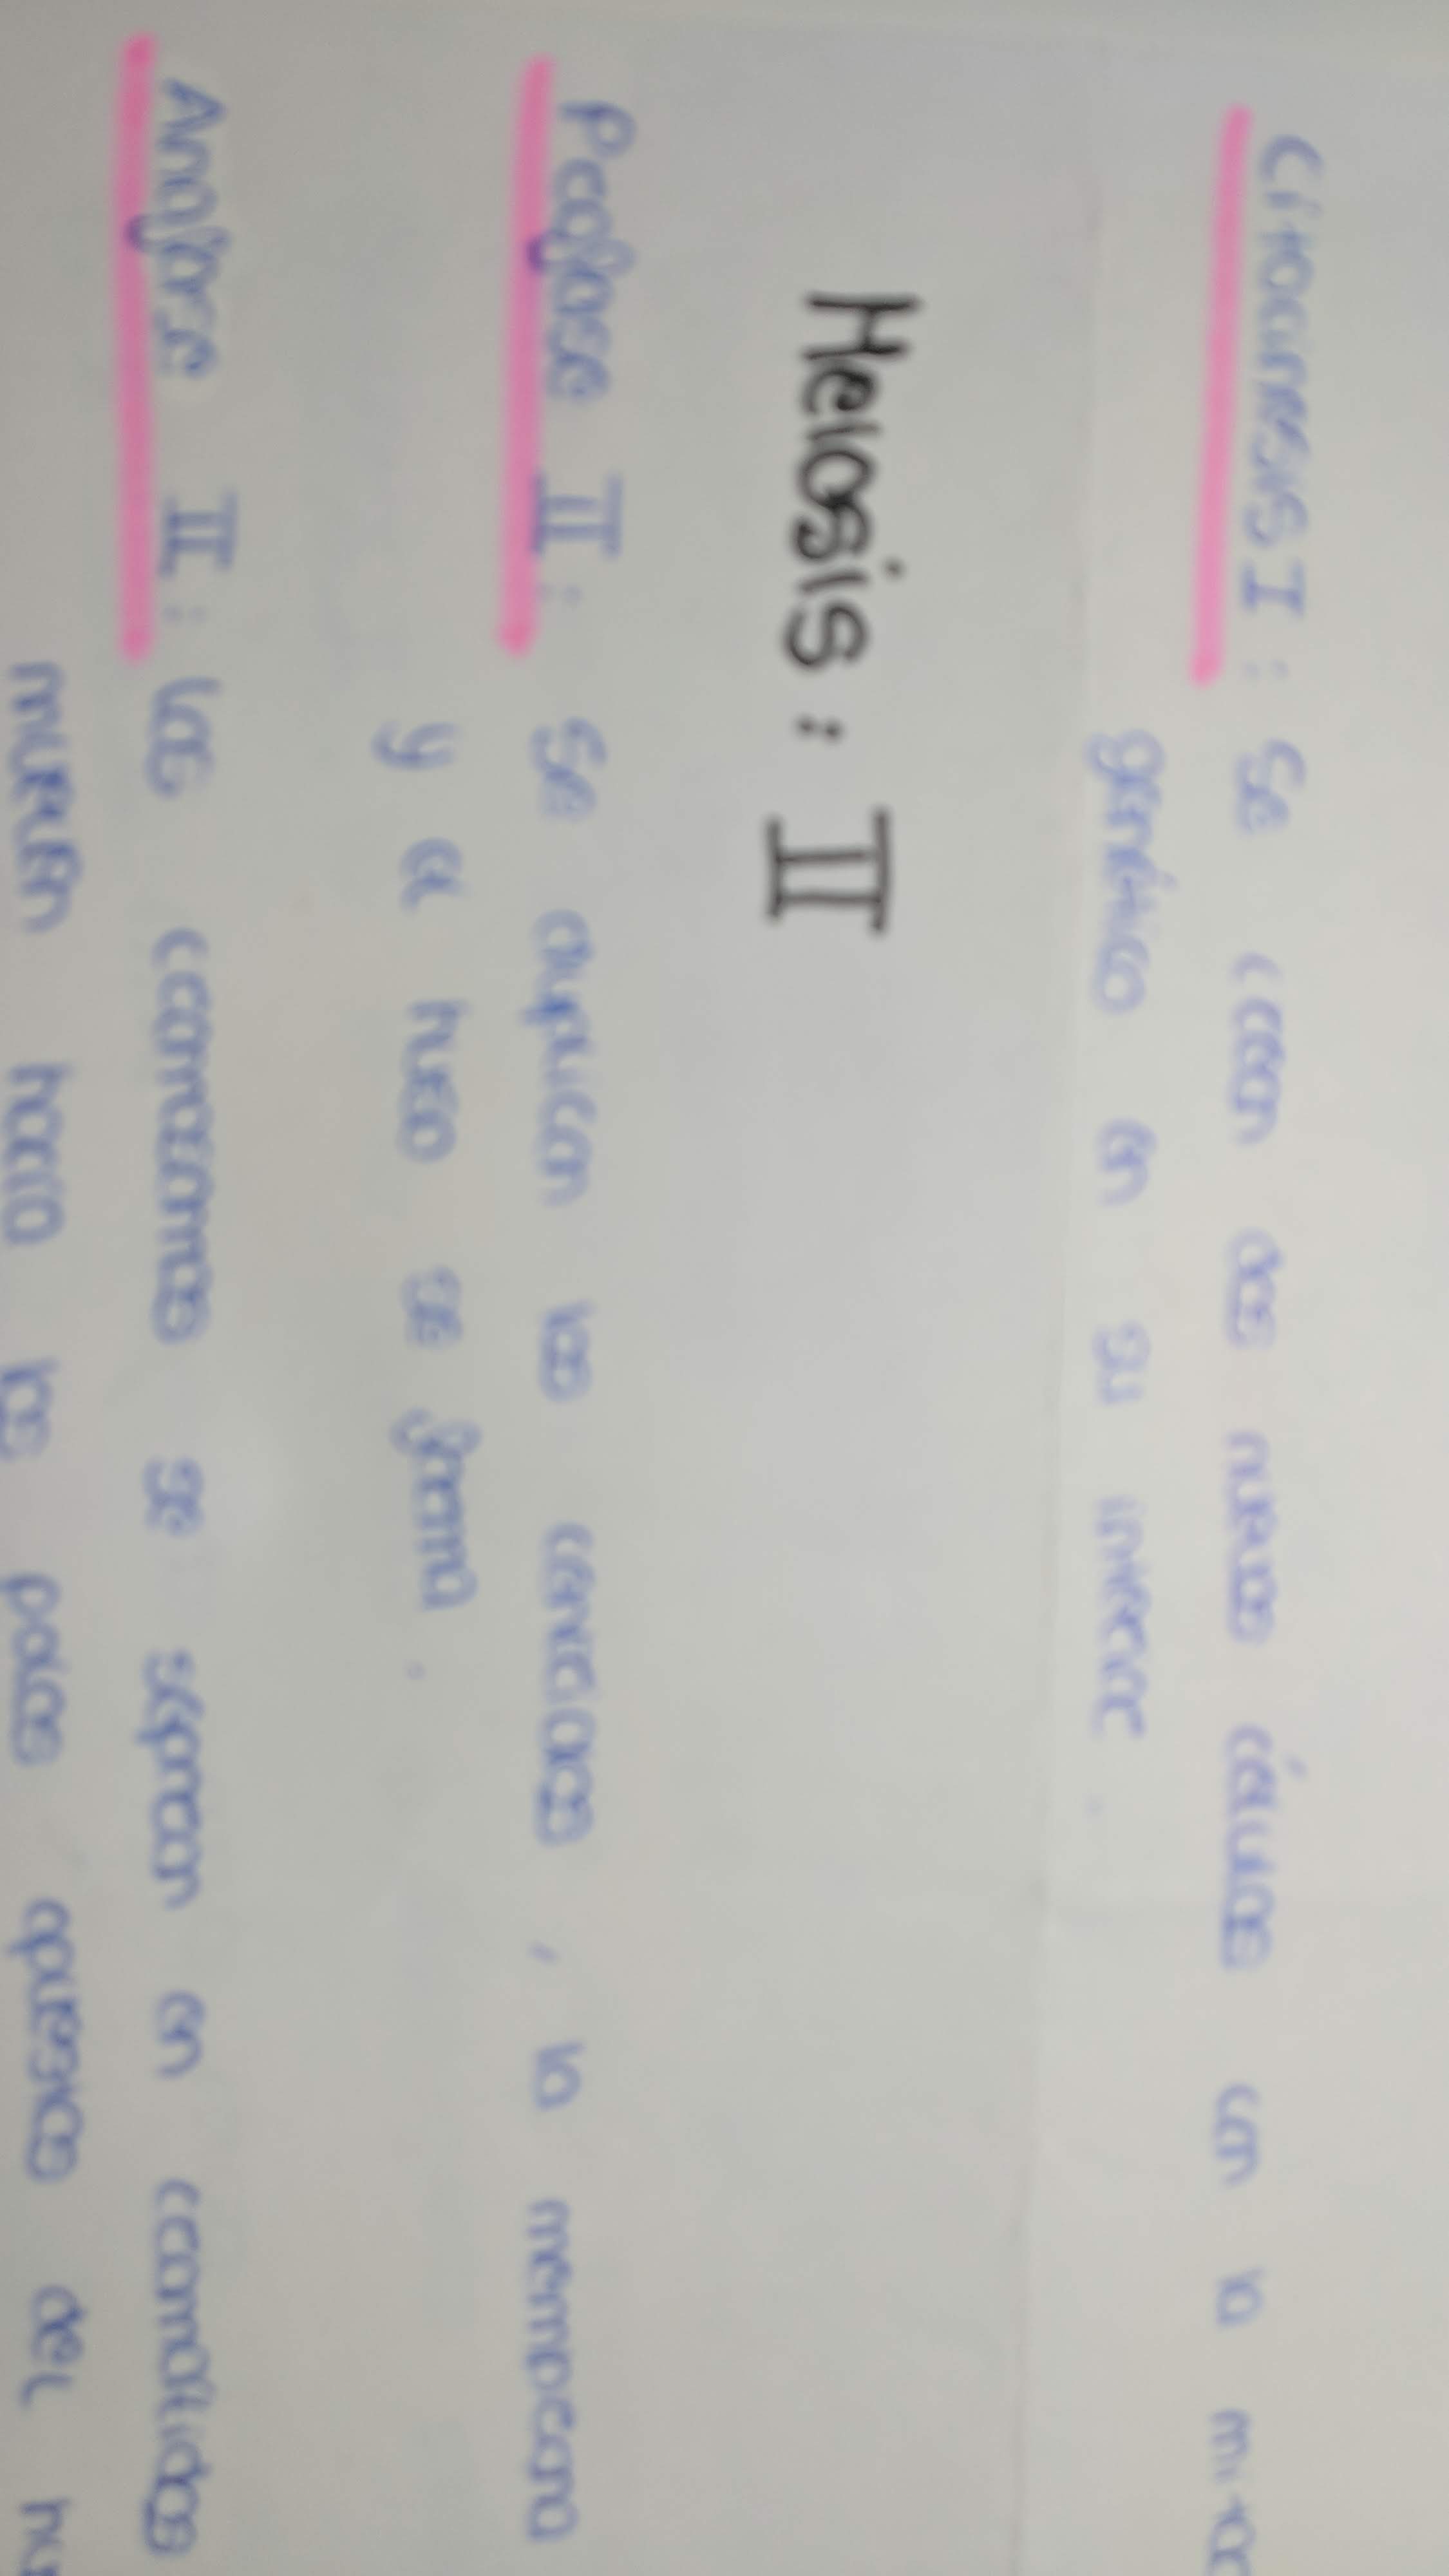 Citocinesis I: Se crean dos nuevas células con la mitad
genético en su interior.
Meiosis: II
Profase II: Se duplican los centriolos, la membrana
y el huso se forma.
Anafase II: los cromosomas se separan en cromátidas
mueven hacia los polos opuestos del